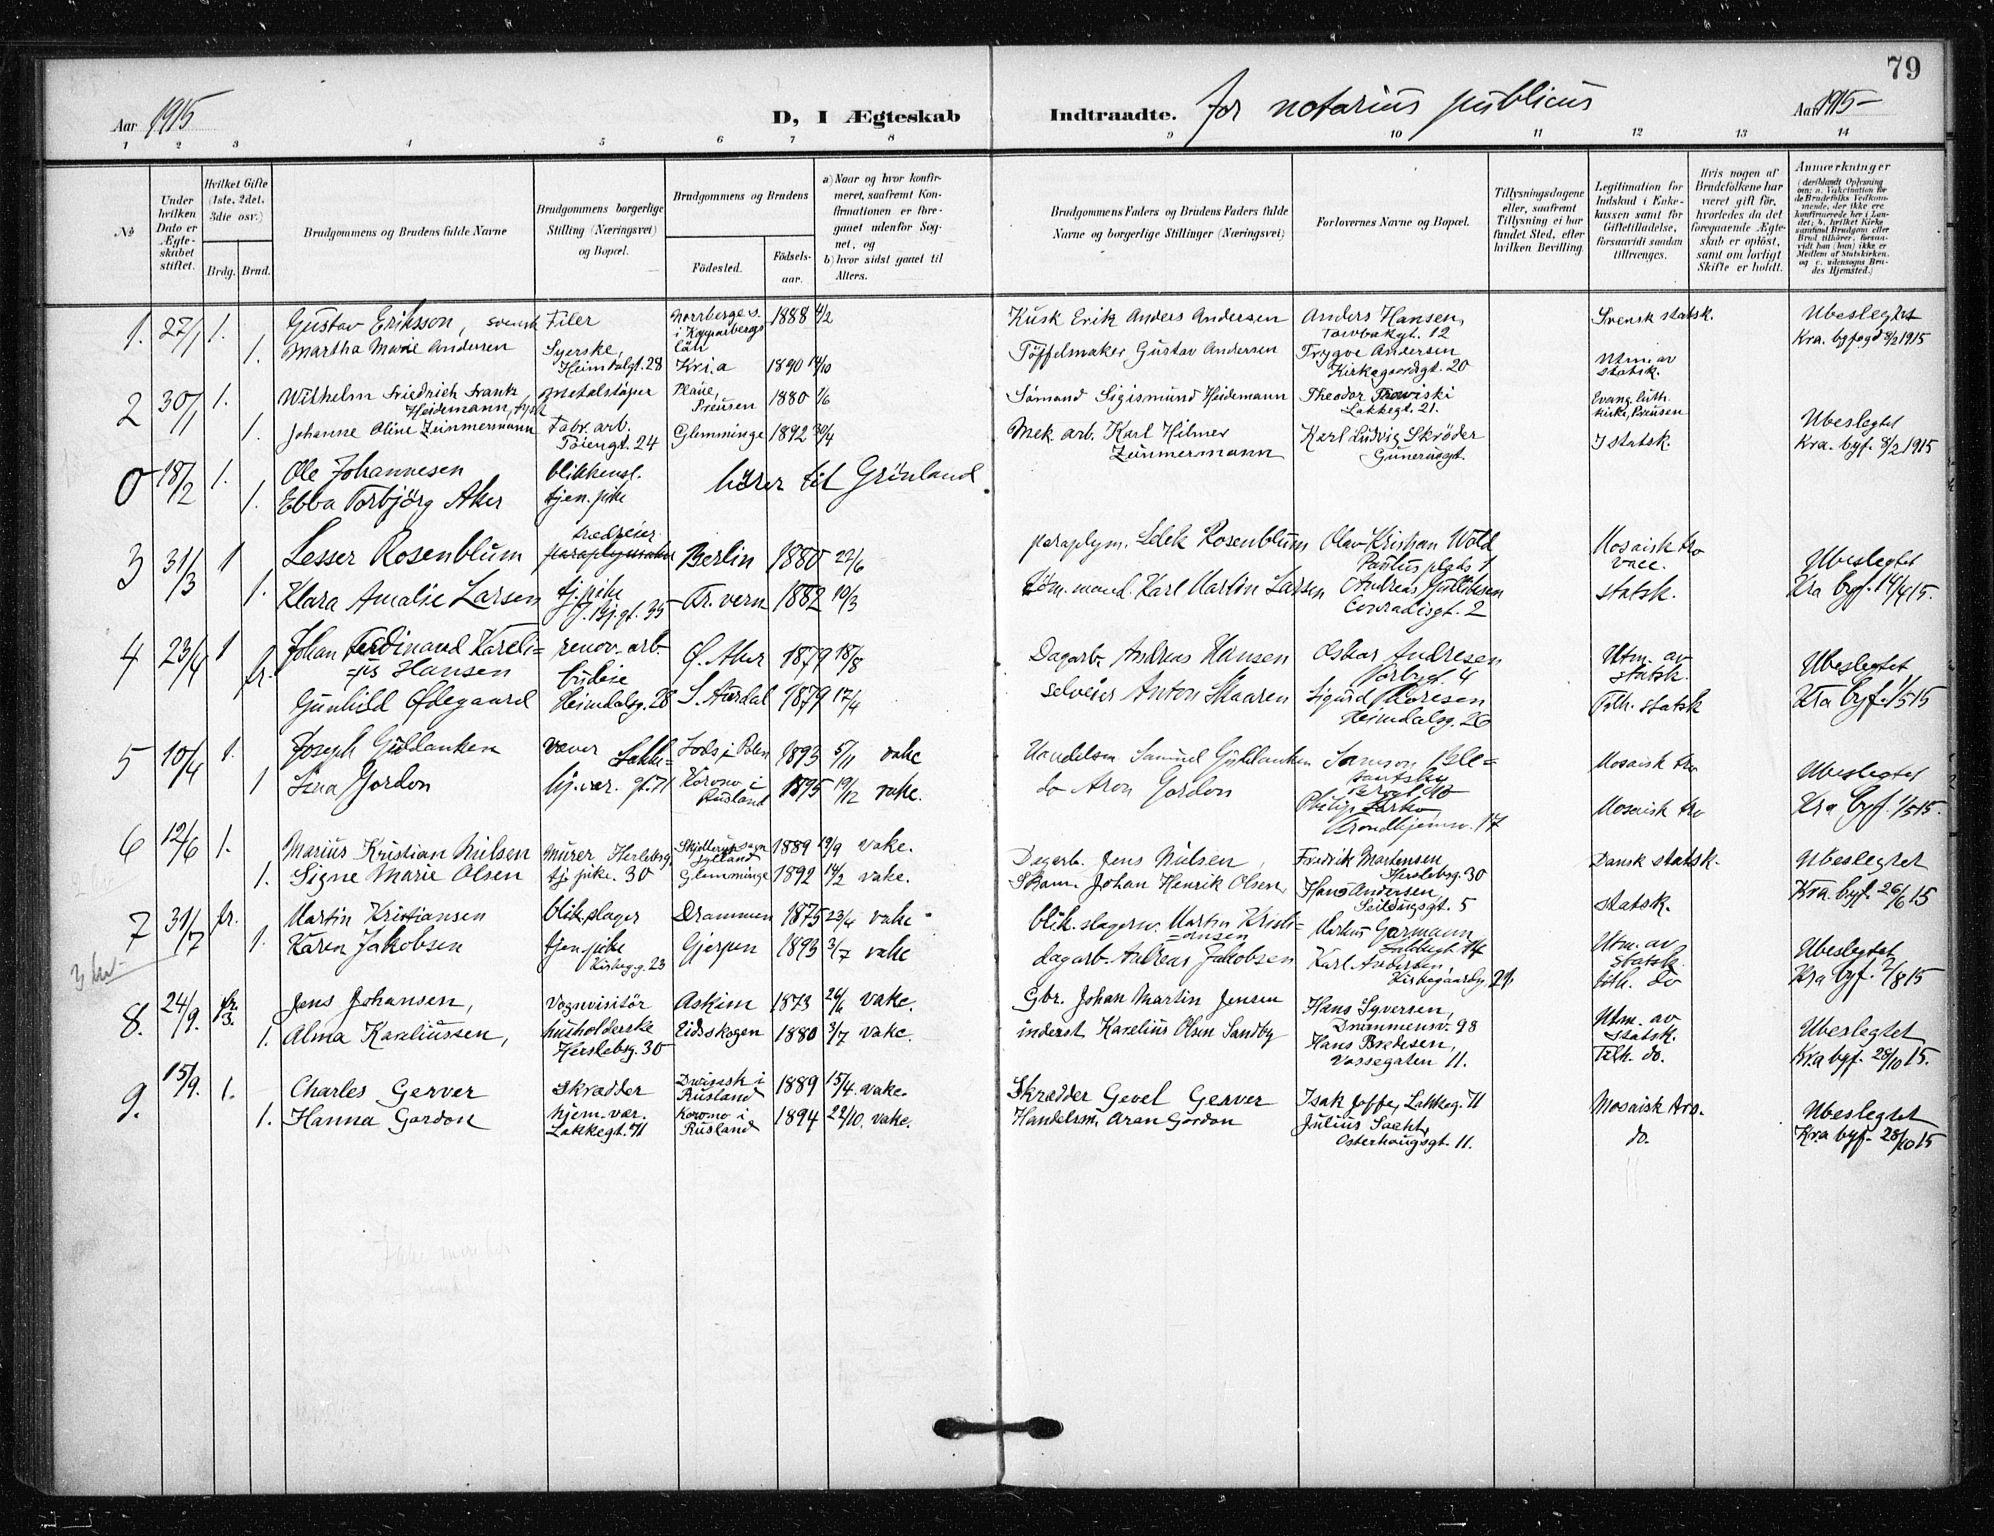 79
Aar 1915 D, I Ægteskab Indtraadte. for notarius publicus Aar 1915 –
1 2 3 4 5 6 7 8 9 10 11 12 13 14
№
Under hvilken Dato er Ægteskabet stiftet.
Hvilket Gifte (1ste, 2det, 3die osv.)
Brdg. Brud.
Brudgommens og Brudens fulde Navne
Brudgommens borgerlige Stilling (Næringsvei) og Bopæl.
Brudgommens og Brudens
Fødested. Fødselsaar.
a) Naar og hvor konfirmeret, saafremt Konfirmationen er foregaaet udenfor Sognet, og
b) hvor sidst gaaet til Alters.
Brudgommens Faders og Brudens Faders fulde Navne og borgerlige Stillinger (Næringsvei)
Forlovernes Navne og Bopæl.
Tillysningsdagene eller, saafremt Tillysning ei har fundet Sted, efter hvilken Bevilling.
Legitimation for Indskud i Enkekassen samt for Giftetilladelse, forsaavidt saadan tiltrænges.
Hvis nogen af Brudefolkene har været gift før, hvorledes da det foregaaende Ægteskab er opløst, samt om lovligt Skifte er holdt.
Anmærkninger
(deriblandt Oplysning om: a. Vakcination for de Brudefolks Vedkommende, der ikke ere konfirmerede her i Landet; b. hvilket Kirkesamfund Brudgom eller Brud tilhører, forsaavidt han (hun) ikke er Medlem af Statskirken, og c. udensogns Brudes Hjemsted.)
1. 27/1 1. Gustav Eriksson, svensk Filer 1888 4/2 Kusk Erik Anders Andersen Anders Hansen, 12 Svensk statsk. Ubeslegtet
1. Martha Marie Andersen Syerske, Heimdalgt. 28 Kr.i.a 1890 14/10 Tøffelmaker Gustav Andersen Trygve Andersen Kirkegaardsgt. 20 Utm. av statsk. Kra. byfogd 8/2 1915
2 30/1 1. Wilhelm Friedrich Frank Heidemann, tysk metalstøper Preusen 1880 1/6 Sømand Sigismund Heidemann Theodor Lakkegt. 21. Evang. luth. kirke, Preusen Ubeslegtet
1. Johanne Aline Zimmermann Fabr. arb. Tøiengt. 24 Glemminge 1892 30/4 Mek. arb. Karl Hilmer Zimmermann Karl Ludvig Skrøder I statsk. Kra. byf. 8/2 1915
0 18/2 1. Ole Johannesen blikkensl. hører til Grønland.
1. Ebba Torbjørg Aker tjen. pike
3 31/3 1 Lesser Rosenblum Berlin 1880 22/6 paraplym. Rosenblum Olav Kristian Wold Paulus plads 1 Mosaisk tro vacc. Ubeslegtet
1. Klara Amalie Larsen tj. pike 35 Fr. vern 1882 10/3 tøm. mand. Karl Martin Larsen Andreas Conradisgt. 2 statsk. Kra byf. 14/4 15.
4 23/4 1 Johan Ferdinand Kareli=us Hansen renov. arb. Ø. Aker 1879 18/8 Dagarb. Andreas Hansen Oskar Andresen Utm. av statsk. Ubeslegtet
fr. Gunhild Ødegaard budeie Heimdalsg. 28 S. Aurdal 1879 17/4 selveier Anton Skaaren Sigurd Heimdalsg. 26 Tilh. statsk Kra byf. 1/5 15
5 10/4 1. Joseph Guttanken væver Lods i Polen 1893 5/11 vake Handelsm. Samuel Guttanken Samson Mosaisk tro Ubeslegtet
1 Lina Gordon hj. vær. Lakkegt. 71 Korono i Rusland 1895 19/12 vake. do Aron Gordon Philip Trondhjemsv. 17 Mosaisk tro Kra byf. 1/5 15.
6 12/6 1. Marius Kristian Nielsen murer Herslebsg. 1889 19/9 vake. Dagarb. Jens Nielsen, Fredrik Mortensen Herslebsg. 30 Dansk statsk. Ubeslegtet
1. Signe Marie Olsen tj. pike. 30 Glemminge 1892 14/2 vake. Johan Henrik Olsen, Hans Andersen, Seildugsgt. 5 statsk. Kra. byf. 26/6 15
7 31/7 fr. Martin Kristiansen blik. slager Drammen 1875 23/4 vake blik. slagerm. Martin Kristi=ansen Markus Garmann Utm. av statsk. Ubeslegtet
1. Karen Jakobsen tjen. pike Kirkeg.g. 23 Gjerpen 1893 3/7 vake dagarb. Andreas Jakobsen Karl Andersen, tilh. do Kra byf. 2/8 15
8. 24/9. fr. 3. Jens Johansen, vognvisitør Askim 1873 26/6 vake. Gbr. Johan Martin Jensen Hans Syversen, Drammensv. 98 Utm. av statsk. Ubeslegtet
1. Alma Kareliussen, husholderske Herslebsg. 30 Eidsskogen 1880 3/7 vake. inderst Karelius Olsen Sandby Hans Bredesen, Vossegaten 11. Tilh. do. Kra byf. 28/10 15.
9. 15/9. 1. Charles Gerver Skrædder Rusland 1889 15/4. vake. Skrædder Gevel Gerver Isak Joffe, Lakkeg. 71 Mosaisk tro. Ubeslegtet
1. Hanna Gordon hjem. vær. Lakkegt. 71 Korono i Rusland 1894 22/10. vake. Handelsm. Aran Gordon Julius Sacht, Osterhaugsgt. 11. do. Kr.a byf. 28/10 15